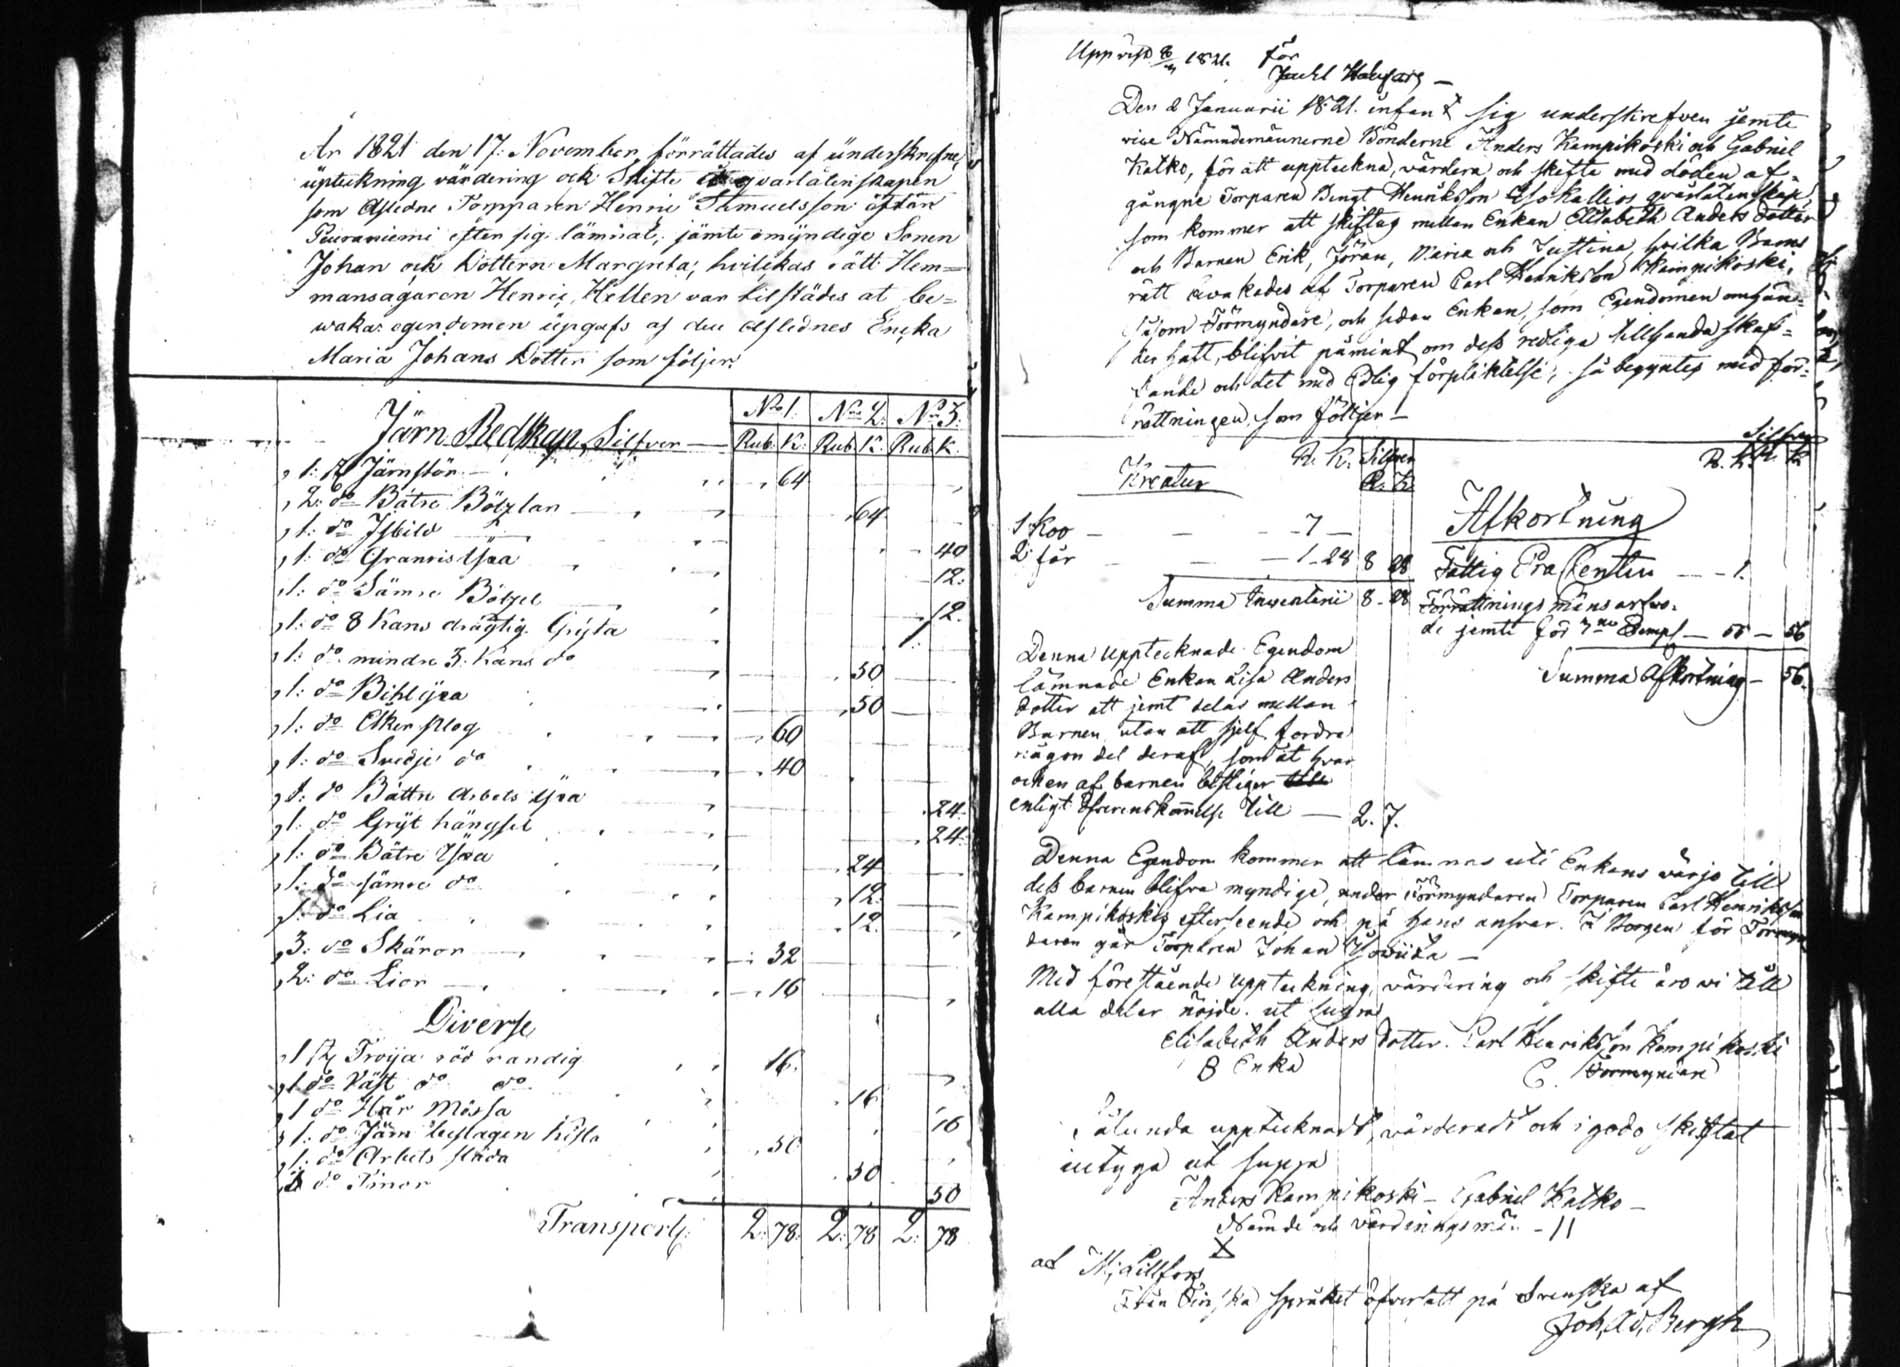 År 1821 den 17: November förrättades af underskrefne
upteckning värdering ock Skifte å qvarlåtenskapen
som Aflidne Torpparen Henric Thomuelsson öfvan
Peuraniemi efter sig lämnat, jämte omyndige Sonen
Johan ock Dottern Margreta; hvilckas rätt Hem=
mansägaren Henric Hellen var tilstädes at be=
waka: egendomen upgafs af den Aflednes Encka
Maria Johans Dotter som följer:
No 1. No 2: No 3:
Järn Redskap, Silfver Rub: K: Rub: K: Rub: K:
1: st Järnstör 64
2: do Bätre Bölzlar 64
1: do Isbild 40
1: do Granris Yxa 12:
1: do Sämre Bölzel 12.
1: do 8 Kans drägtig Gryta 1:
1: do mindre 3: Kans do 50
1: do Bihlyxa 50
1: do Åker plog 60
1: do Svedje do 40
1: do Bättre Arbets Yxa 24.
1: do Gryt hängsel 24.
1: do Bätre Yxa 24
1: do sämre do 12.
1: do Lia 12.
3: do Skäror 32
2: do Lior 16
Diverse
1 st Tröja röd randig 16.
1 do Väst do do 16
1 do Hår Mössa 16
1: do Järn beslagen Kista 50
1: do Arbets släda 50
do Tinor 50
Transport 2: 78. 2: 78 2: 78
Uppvist 1821. för
Den 2 Januarii 1821. infant sig underskrefven jemte
vice Nämndemännerne Bönderne Anders Kampikoski och Gabriel
Katko, för att uppteckna, värdera och skifta med döden af=
gångne Torparen Bengt Henrikson Isokallios qvarlåtenskap,
som kommer att skiftas mellan Enkan Elisabeth Anders dotter
och Barnen Erik, Jöran, Maria och Justina, hvilka Barns
rätt bevakades af Torparen Carl Henrikson Kampikoski,
såsom Förmyndare, och sedan Enkan, som Egendomen omhän=
der haft, blifvit påmint om dess rediga tillhanda skaf=
fande och det med Edlig förpliktelse, så begyntes med för=
rättningen, som följer
Kreatur R. K. Silfver R. K.
1 Ko 7
2 får 1. 28 8 28
Summa Inventarii 8 28
Silfver
R. K. R. K.
Afkortning
Fattig Pro Centen 1.
Förrättnings mäns arfvo=
de jemte för Stempl 55 56
Summa Afkortning 56.
Denna upptecknade Egendom
lämnade Enkan Lisa Anders
dotter att jemt delas mellan
Barnen, utan att sjelf fordra
någon del deraf, som åt hvar
och en af barnen bestiger
enligt öfverenskommelse till 2. 7.
Denna Egendom kommer att lämnas uti Enkans värjo till
dess barnen blifva myndige, under Förmyndaren Torparen Carl Henrikson
Kampikoskis efterseende och på hans ansvar. I Borgen för Förmyn
daren går Torparen Johan
Med förestående uppteckning, värdering och skifte äro vi till
alla delar nöjde. ut supra
Elisabeth Anders dotter. Carl Henrikson Kampikoski
Enka Förmyndare
Sålunda upptecknadt, värderadt och i godo skiftat
intyga ut supra
Anders Kampikoski Gabriel Katko
Nämnde och Värderingsmän
af M: Lillfors
Från Finska språket öfversatt på Svenska af
Joh. Ad. Bergh